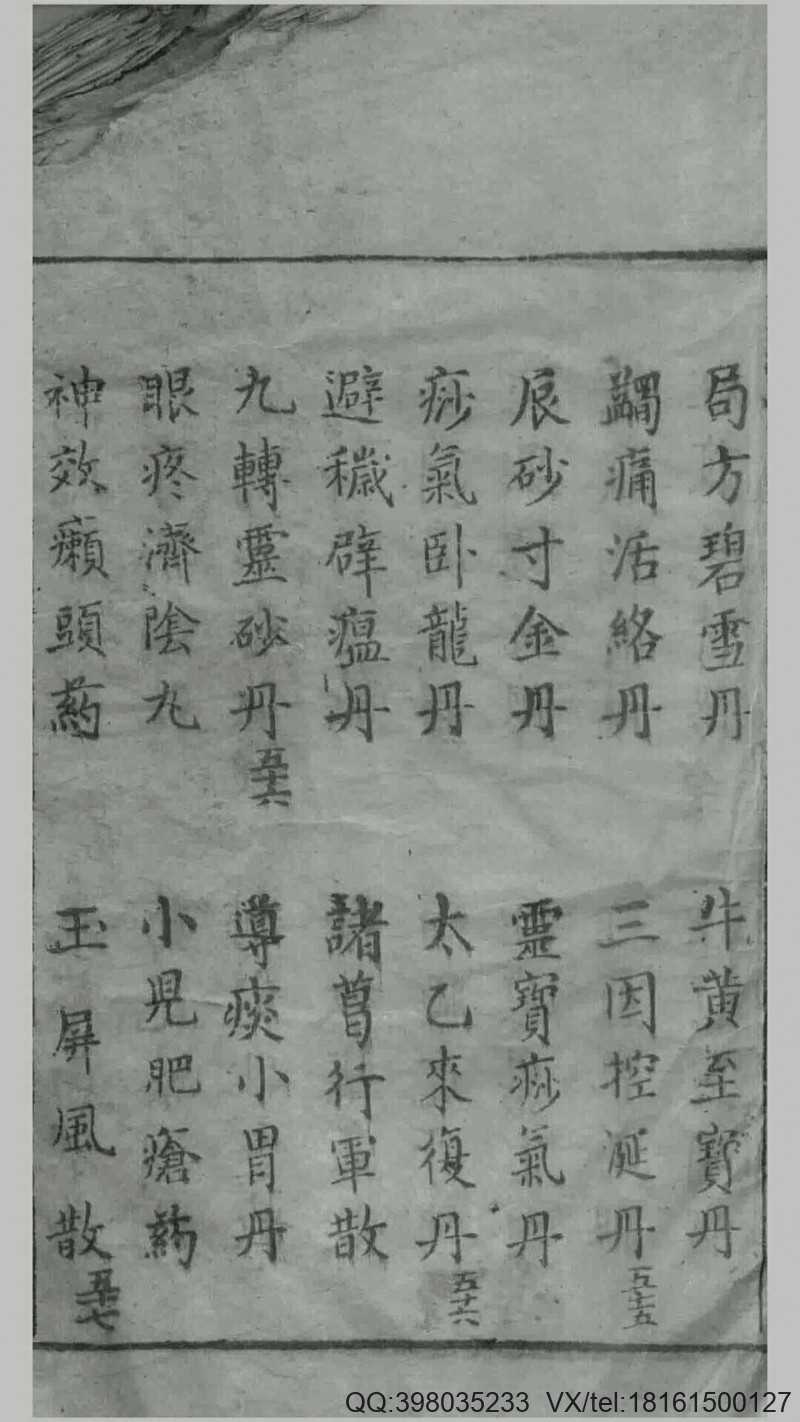 局方碧雪丹
牛黃至寶丹
蠲痛活絡丹
三因控涎丹 五十五
辰砂寸金丹
靈寶痧氣丹
痧氣卧龍丹
太乙來復丹 五十六
避穢辟瘟丹
諸葛行軍散
九轉靈砂丹 五十六
導痰小胃丹
眼疼濟陰丸
小児肥瘡药
神效癩頭药
玉屏風散 五十七
QQ:398035233 VX/tel:18161500127